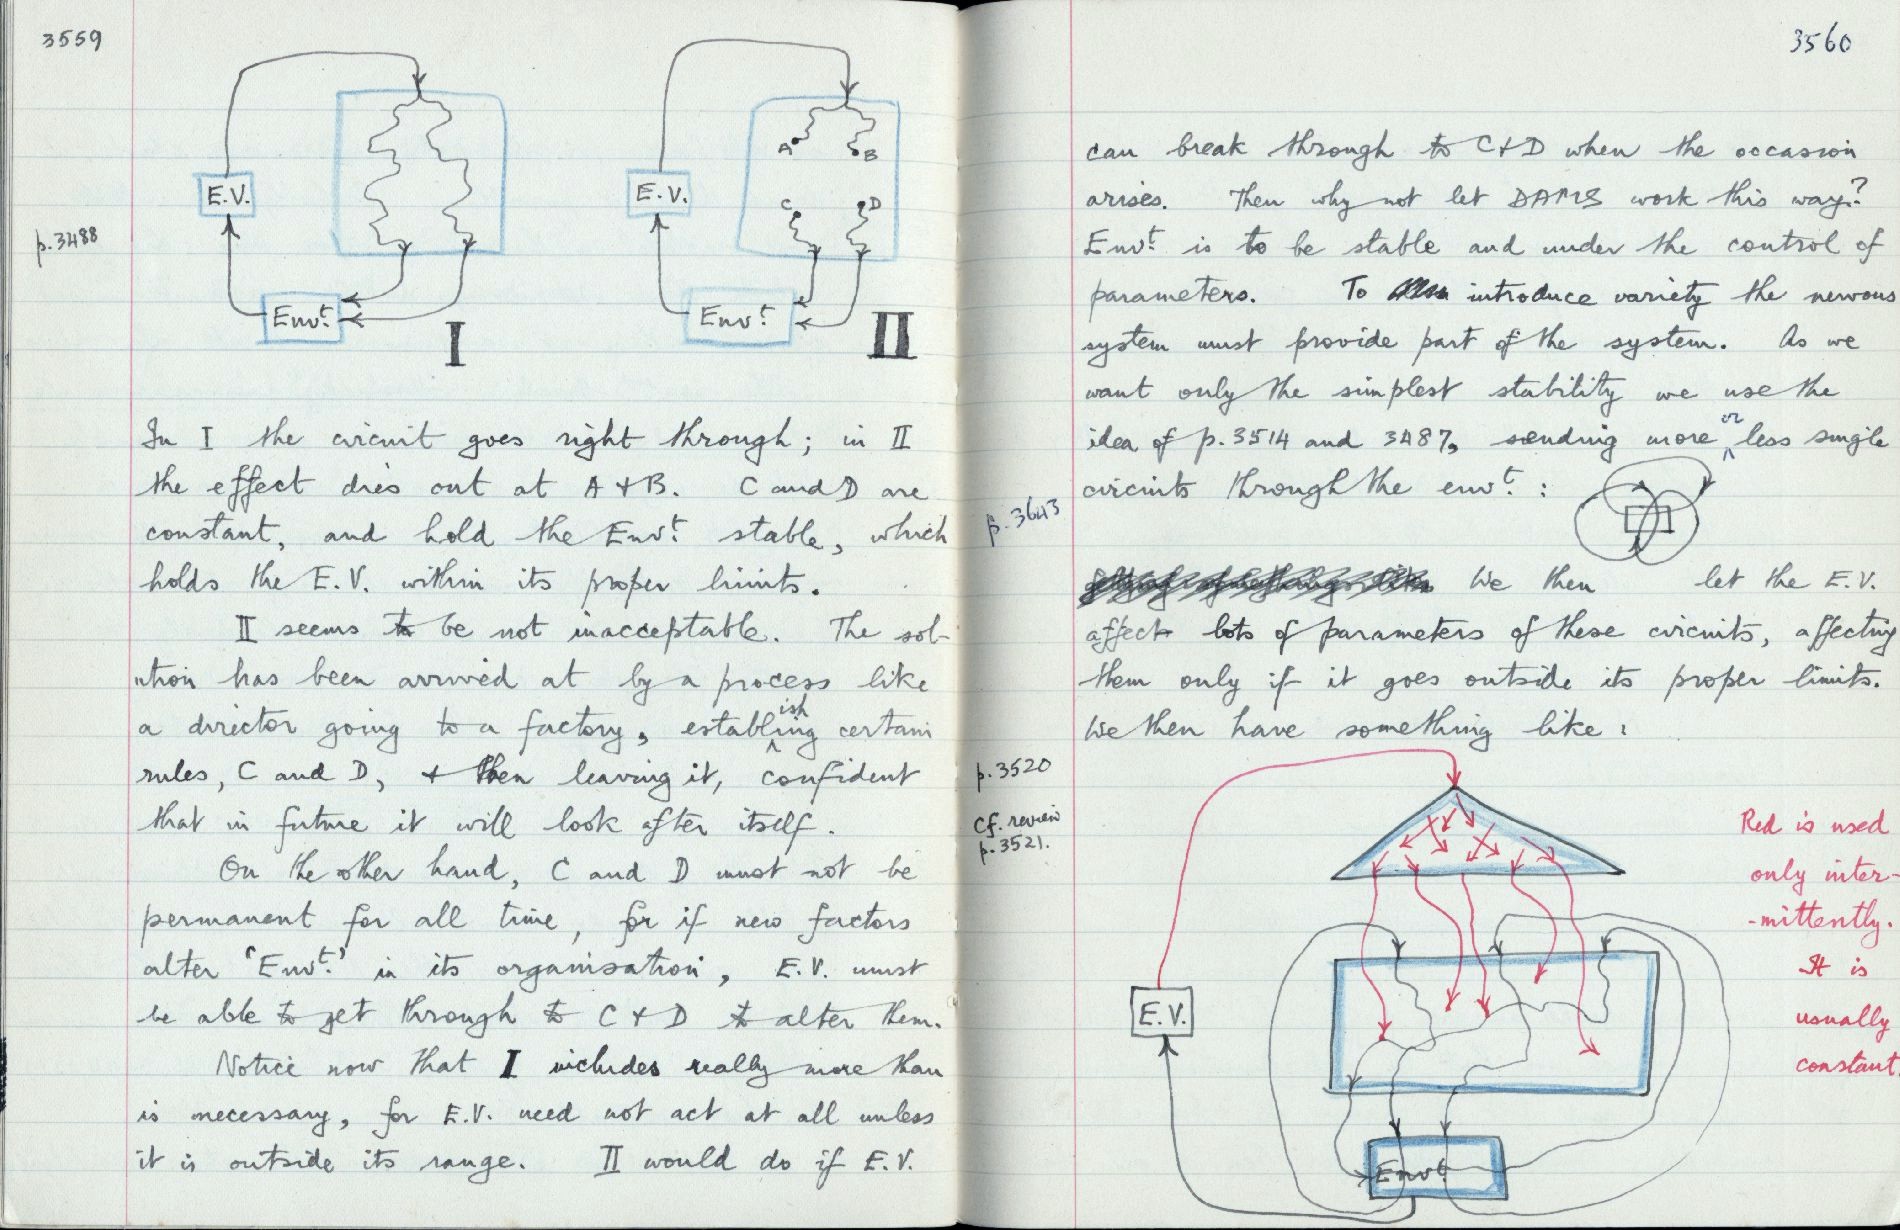 3559
E.V.
Env.t
I
A
B
C
D
E.V.
Env.t
II
p.3488
In I the circuit goes right through; in II
the effect dies out at A + B. C and D are
constant, and hold the Env.t stable, which
holds the E.V. within its proper limits.
II seems to be not inacceptable. The sol-
ution has been arrived at by a process like
a director going to a factory, establishing certain
rules, C and D, + then leaving it, confident
that in future it will look after itself.
On the other hand, C and D must not be
permanent for all time, for if new factors
alter 'Env.t' in its organisation, E.V. must
be able to get through to C + D to alter them.
Notice now that I includes really more than
is necessary, for E.V. need not act at all unless
it is outside its range. II would do if E.V.
3560
can break through to C + D when the occasion
arises. Then why not let DAMS work this way?
Env.t is to be stable and under the control of
parameters. To introduce variety the nervous
system must provide part of the system. As we
want only the simplest stability we use the
idea of p.3514 and 3487, sending more or less single
circuits through the env.t :
p.3643
We then let the E.V.
affect lots of parameters of these circuits, affecting
them only if it goes outside its proper limits.
We then have something like :
p.3520
cf. review
p.3521.
E.V.
Env.t
Red is used
only inter-
-mittently.
It is
usually
constant.